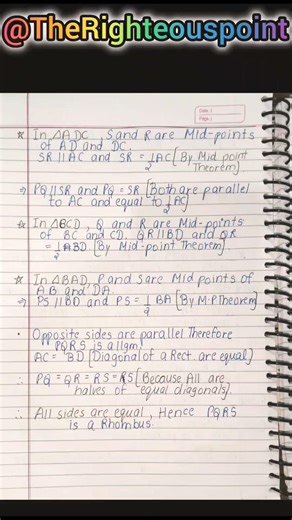 @TheRighteouspoint
Date
Page
☆ In ΔADC, S and R are Mid-points
of AD and DC.
SR || AC and SR = 1/2 AC [By Mid point
Theorem]
⇒ PQ || SR and PQ = SR [Both are parallel
to AC and equal to 1/2 AC]
☆ In ΔBCD, Q and R are Mid-points
of BC and CD. QR || BD and QR
= 1/2 BD [By Mid-point Theorem]
☆ In ΔBAD, P and S are Mid points of
AB and DA.
⇒ PS || BD and PS = 1/2 BA [By M.P Theorem]
• Opposite sides are parallel Therefore
PQRS is a llgm.
AC = BD [Diagonal of a Rect. are equal]
∴ PQ = QR = RS = [Because All are
halves of equal diagonals].
∴ All sides are equal, Hence PQRS
is a Rhombus.